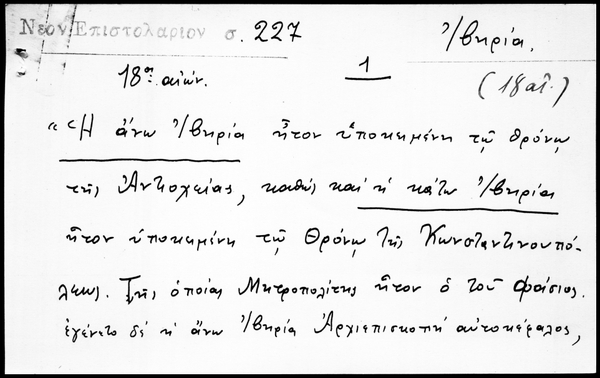 Νέον Ἐπιστολάριον σ. 227
Ἰβηρία.
18ος αἰών.
1
(18 αἰ.)
«Ἡ ἄνω Ἰβηρία ἦτον ὑποκειμένη τῷ θρόνῳ
τῆς Ἀντιοχείας, καθὼς καὶ ἡ κάτω Ἰβηρία
ἦτον ὑποκειμένη τῷ Θρόνῳ τῆς Κωνσταντινουπό-
λεως. Τῆς ὁποίας Μητροπολίτης ἦτον ὁ τοῦ Φάσιος.
ἐγένετο δὲ ἡ ἄνω Ἰβηρία Ἀρχιεπισκοπὴ αὐτοκέφαλος,